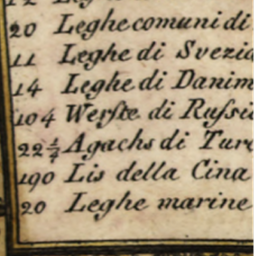 20 Leghe comuni di
11 Leghe di Svezia
14 Leghe di Danim
104 Werſte di Ruſsi
22 1/4 Agachs di Tur
190 Lis della Cina
20 Leghe marine